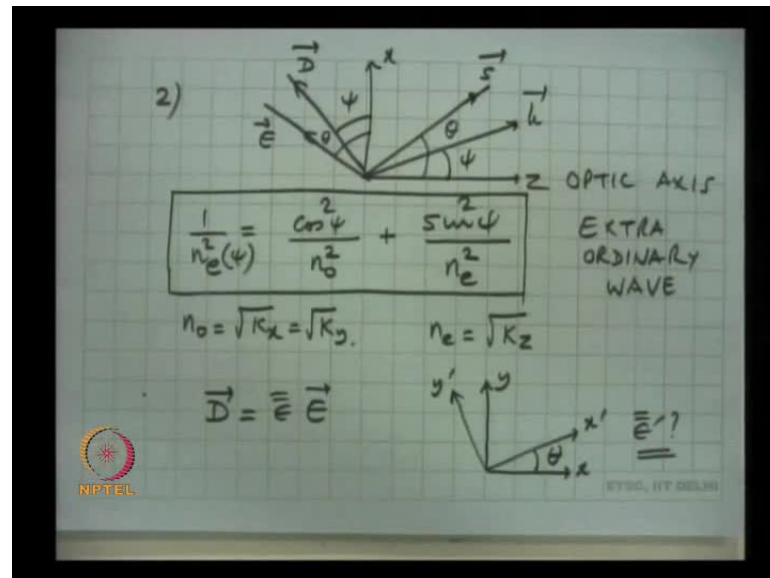 2)
D⃗ ψ x S⃗
E⃗ θ θ k⃗
ψ
Z OPTIC AXIS
1/n²e(ψ) = cos²ψ/n²o + sin²ψ/n²e
EXTRA
ORDINARY
WAVE
no = √Kx = √Ky. ne = √Kz
D⃗ = ε̿ E⃗
y' y x' θ x
ε̿'?
NPTEL
ETSC, IIT DELHI